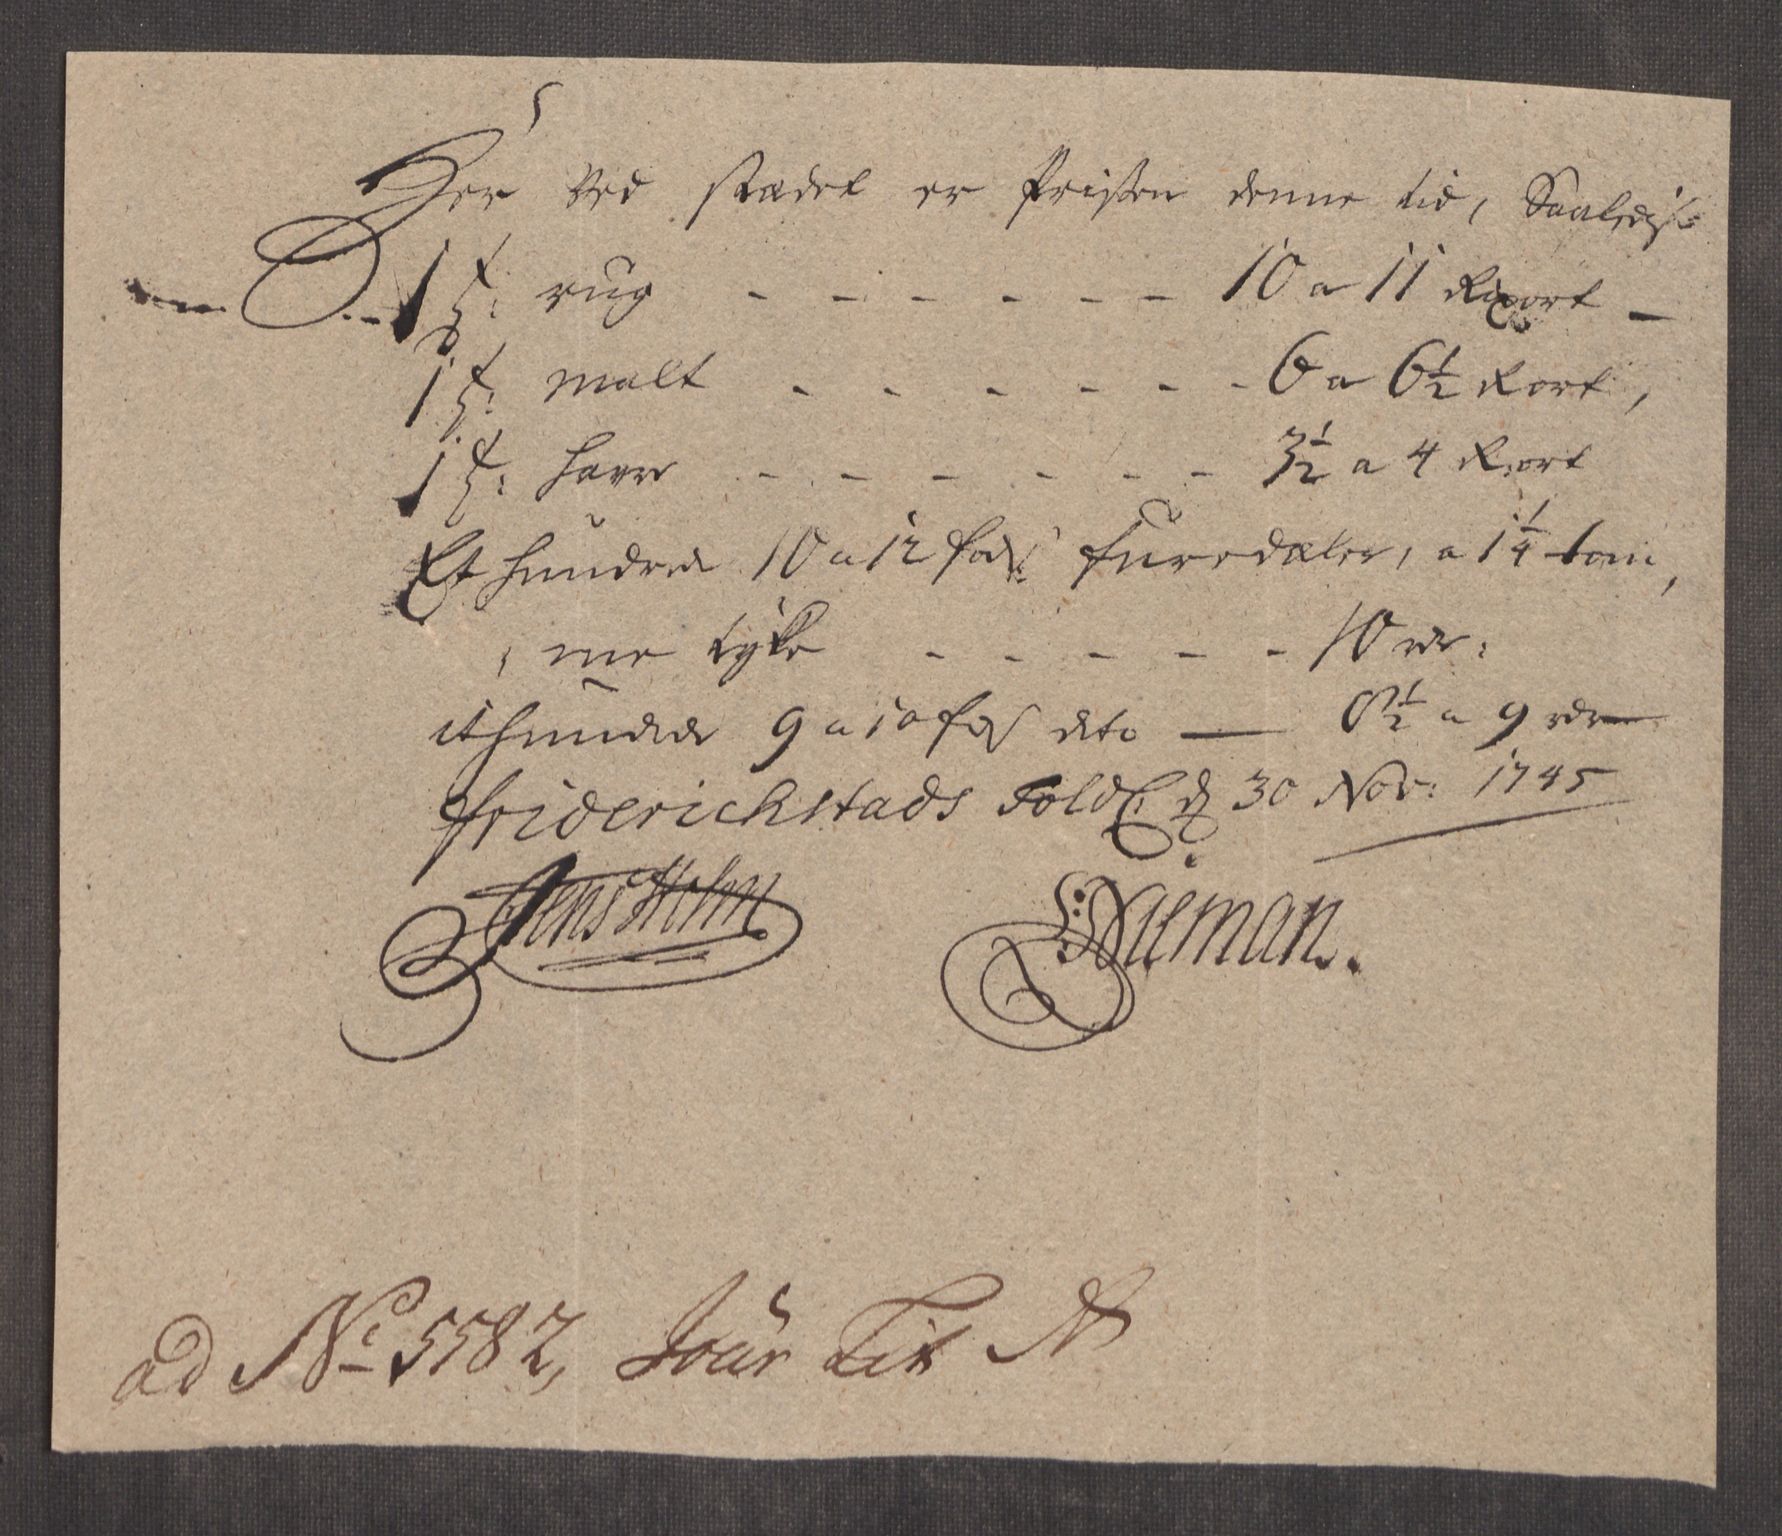 Her ved stædet er Prisen denne tid, Saaledis
1 t: rug - - - - - - 10 a 11 Rixort
1 t: malt - - - - - - 6 a 6½ Rort,
1 t: havre - - - - - - 3½ a 4 Rort
Et hundrede 10 a 12 fods furedæler, a 1¼ tom,
me tyke - - - - - 10 rdr:
it hundrede 9 a 10 fods dito — 8½ a 9 rdr
Friderichstads Told d 30 Nov: 1745
Jens Holm
Naeman.
ad No 5582, Jour Lit N